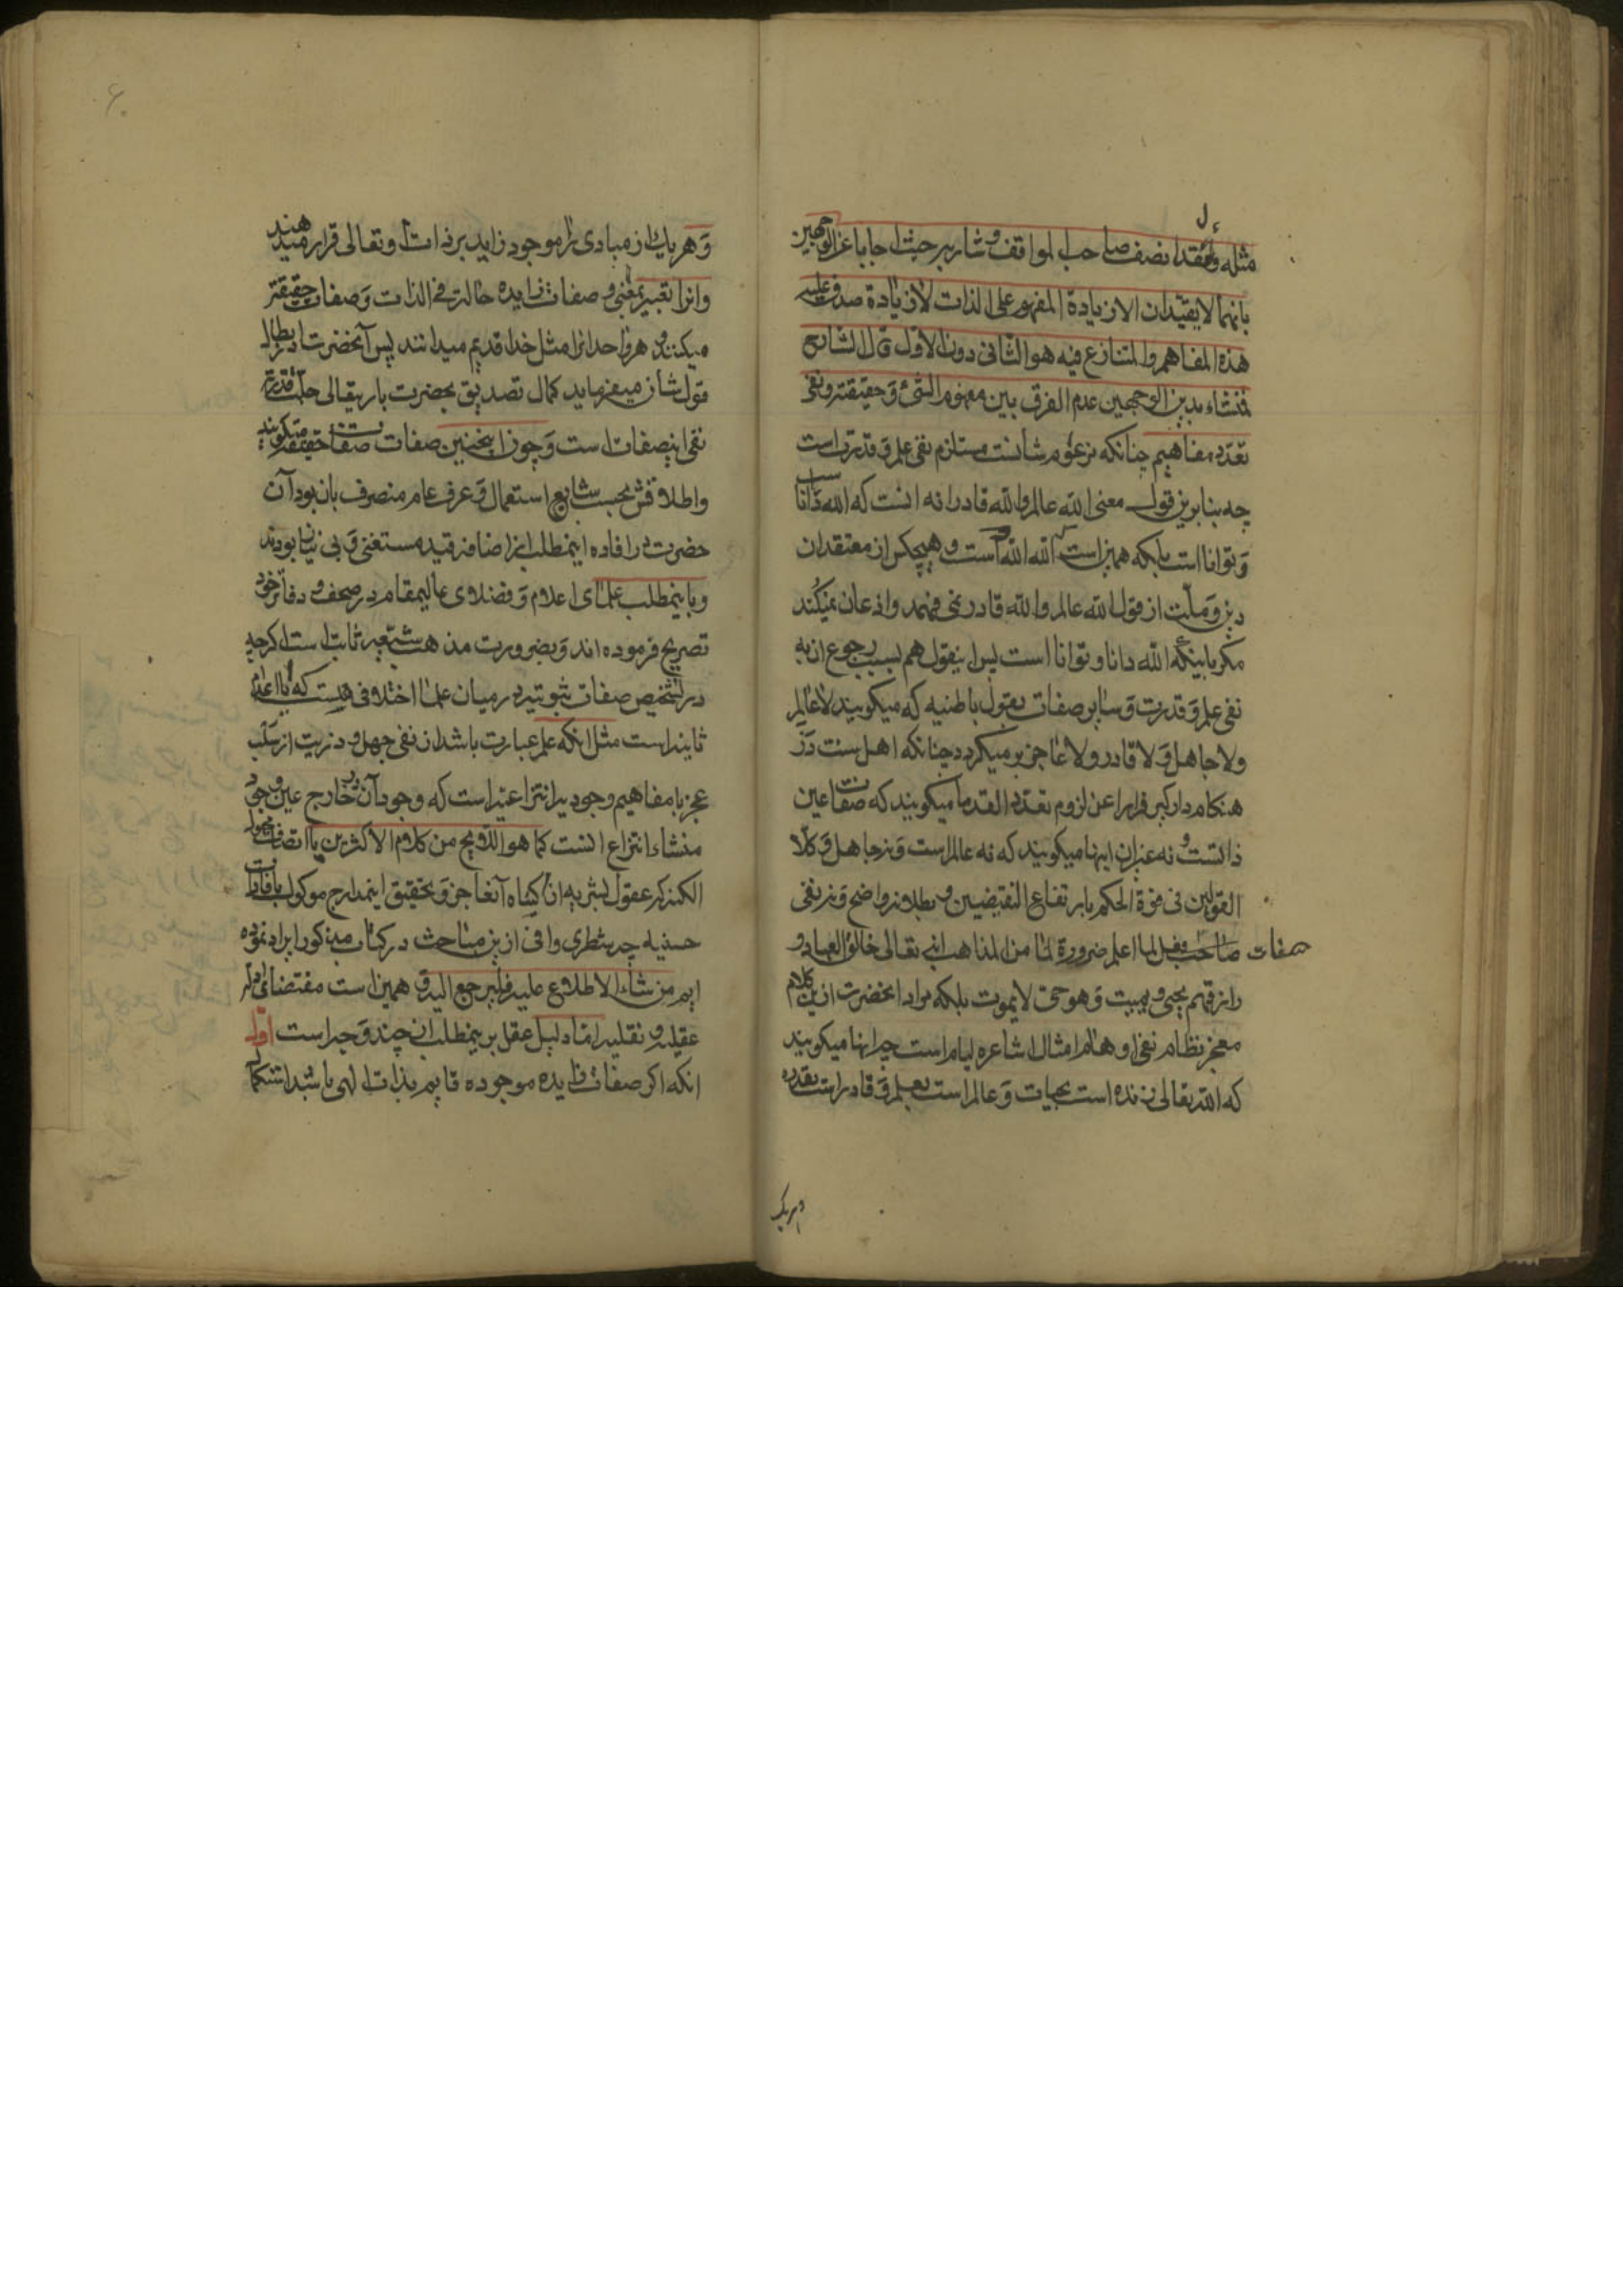 مثله ولقد انصف صاحب المواقف و شارحه حيث اجابا عن الوجهين
بانهما لا يفيدان الا زيادة المفهوم على الذات لا زيادة ما صدق عليه
هذه المفاهيم والمتنازع فيه هو الثانى دون الاول قال الشارح
منشاء هذين الوجهين عدم الفرق بين مفهوم الشئ و حقيقته ونفى
تعدد مفاهيم چنانكه مزعوم شانست مستلزم نفى علم و قدرتست
چه بنابرين قول معنى الله عالم والله قادر نه انست كه الله دانا
و تواناست بلكه همين است كه الله الله است و هيچكس از معتقدان
دين و ملت از قول الله عالم والله قادر نمى فهمد واذعان نميكند
مكر باينكه الله دانا و توانا است پس اينقول هم بسبب رجوع ان به
نفى علم و قدرت و ساير صفات بقول باطنيه كه ميكويند لا عالم
ولا جاهل و لا قادر ولا عاجز برميكردد چنانكه اهل سنت در
هنكام داركير فرارا عن لزوم تعدد القدما ميكويند كه صفات نه عين
ذاتست و نه غيران اينها ميكويند كه نه عالم است و نه جاهل و كلا
القولين فى قوة الحكم بارتفاع النقيضين و بطلانه واضح و نه نفى
صفات صاحب فصل لما اعلم ضرورة لنا من المذاهب انه تعالى خالق العباد و
رازقهم يحيى و يميت و هو حى لا يموت بلكه مراد انحضرت ازين كلام
معجز نظام نفى اوهام امثال اشاعره ليام است چه اينها ميكويند
كه الله تعالى زنده است بحيات و عالم است بعلم و قادر است بقدرة
وهريك
و هريك از مبادى را موجود زايد بر ذات او تعالى قرار ميدهند
وانرا تعبير بمعنى و صفات زايده حالة فى الذات و صفات حقيقته
ميكنند و هر واحد انرا مثل خدا قديم ميدانند پس آنحضرت در ابطال
قول شان ميفرمايد كمال تصديق بحضرت باريتعالى جلت قدرته
نفى اينصفات است و چون اينچنين صفات را صفات حقيقه ميكويند
واطلاقش بحسب شايع استعمال و عرف عام منصرف بان بود آن
حضرت در افاده اينمطلب از اضافه قيد مستغنى و بى نياز بودند
وباينمطلب علماى اعلام و فضلاى عاليمقام در صحف و دفاتر خود
تصريح فرموده اند و بضرورت مذهب شيعه ثابت است اكرچه
در تشخيص صفات ثبوتيه در ميان علما اختلافى هست كه يا اعدام
ثانيه است مثل انكه علم عبارت باشد از نفى جهل و قدرت از سلب
عجز يا مفاهيم وجوديه انتزاعيه است كه وجود آن در خارج عين وجود
منشاء انتزاع انست كما هو اللايح من كلام الاكثرين يا اتصاف مجهول
الكنه كه عقول بشريه از كنه آن عاجز و تحقيق اينمدارج موكول بافادات
حسنيه چه شطرى وافى ازين مباحث در كتاب مذكور ايراد نموده
ايم من شاء الاطلاع عليه فليرجع اليه و همين است مقتضاى ادله
عقليه و نقليه اما دليل عقل بر اينمطلب از چند وجه است اول
انكه اكر صفات زايده موجوده قايم بذات الهى باشد استكمال